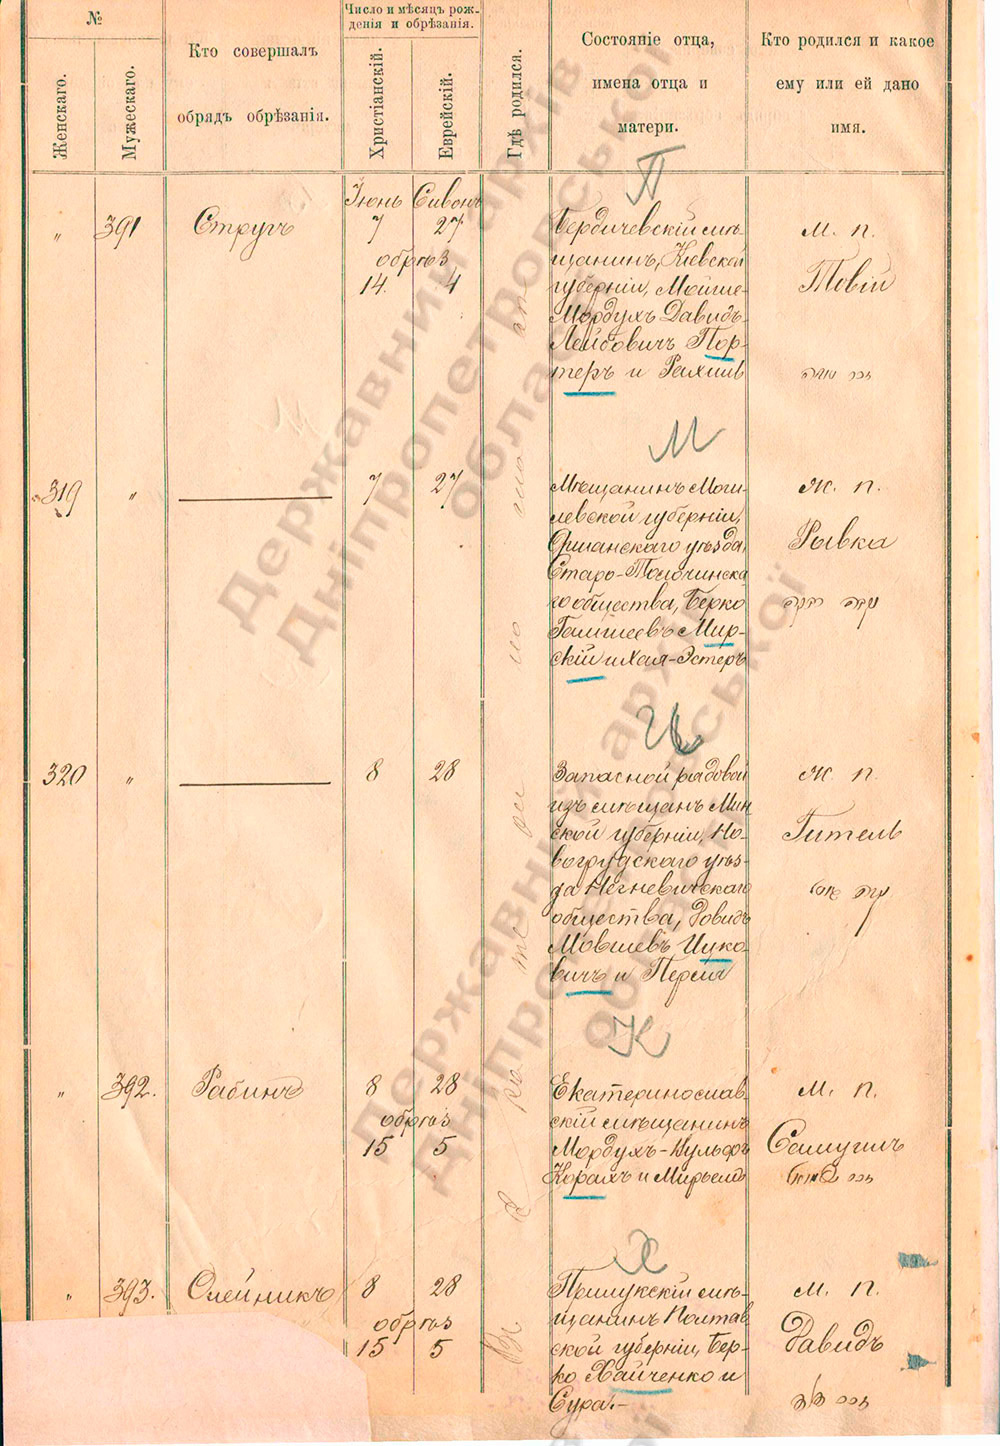 №
Женскаго.
Мужескаго.
Кто совершалъ
обрядъ обрѣзанія.
Число и мѣсяцъ рож-
денія и обрѣзанія.
Христіанскій.
Еврейскій.
Гдѣ родился.
Состояніе отца,
имена отца и
матери.
Кто родился и какое
ему или ей дано
имя.
П
"
391
Стругъ
Іюнь Сивонъ
7 27
обрѣз
14. 4
Бердичевскій мѣ-
щанинъ, Кіевской
губерніи, Мойше-
Мордухъ Давидъ-
Лейбовичъ Пор-
теръ и Рахиль
м. п.
Товій
М
319
"
7 27
Мѣщанинъ Моги-
левской губерніи,
Оршанскаго уѣзда,
Старо-Толочинска
го общества, Берко
Мир-
скій и Хая-Эстеръ
ж. п.
Рывка
Ц
320
"
8 28
Запасной рядовой
изъ мѣщанъ Мин
ской губерніи, Но-
вогрудскаго уѣз-
да Негневичскаго
общества, Довидъ
Мовшевъ Цуко-
вичъ и Песия
ж. п.
Гитель
К
"
392.
Рабинъ
8 28
обрѣз
15 5
Екатеринослав-
скій мѣщанинъ
Мордухъ-Вульфъ
Корахъ и Мирьемъ
м. п.
Самуилъ
Х
"
393.
Олейникъ
8 28
обрѣз
15 5
Прилукскій мѣ-
щанинъ Полтав
ской губерніи, Бер-
ко Хайченко и
Сура.-
м. п.
Давидъ
Въ Екатеринославѣ
Державний архів
Дніпропетровської
області
Державний архів
Дніпропетровської
області